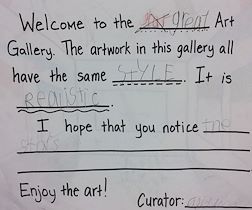 Welcome to the great Art
Gallery. The artwork in this gallery all
have the same STYLE. It is
Rearistic.
I hope that you notice the
Enjoy the art!
Curator: